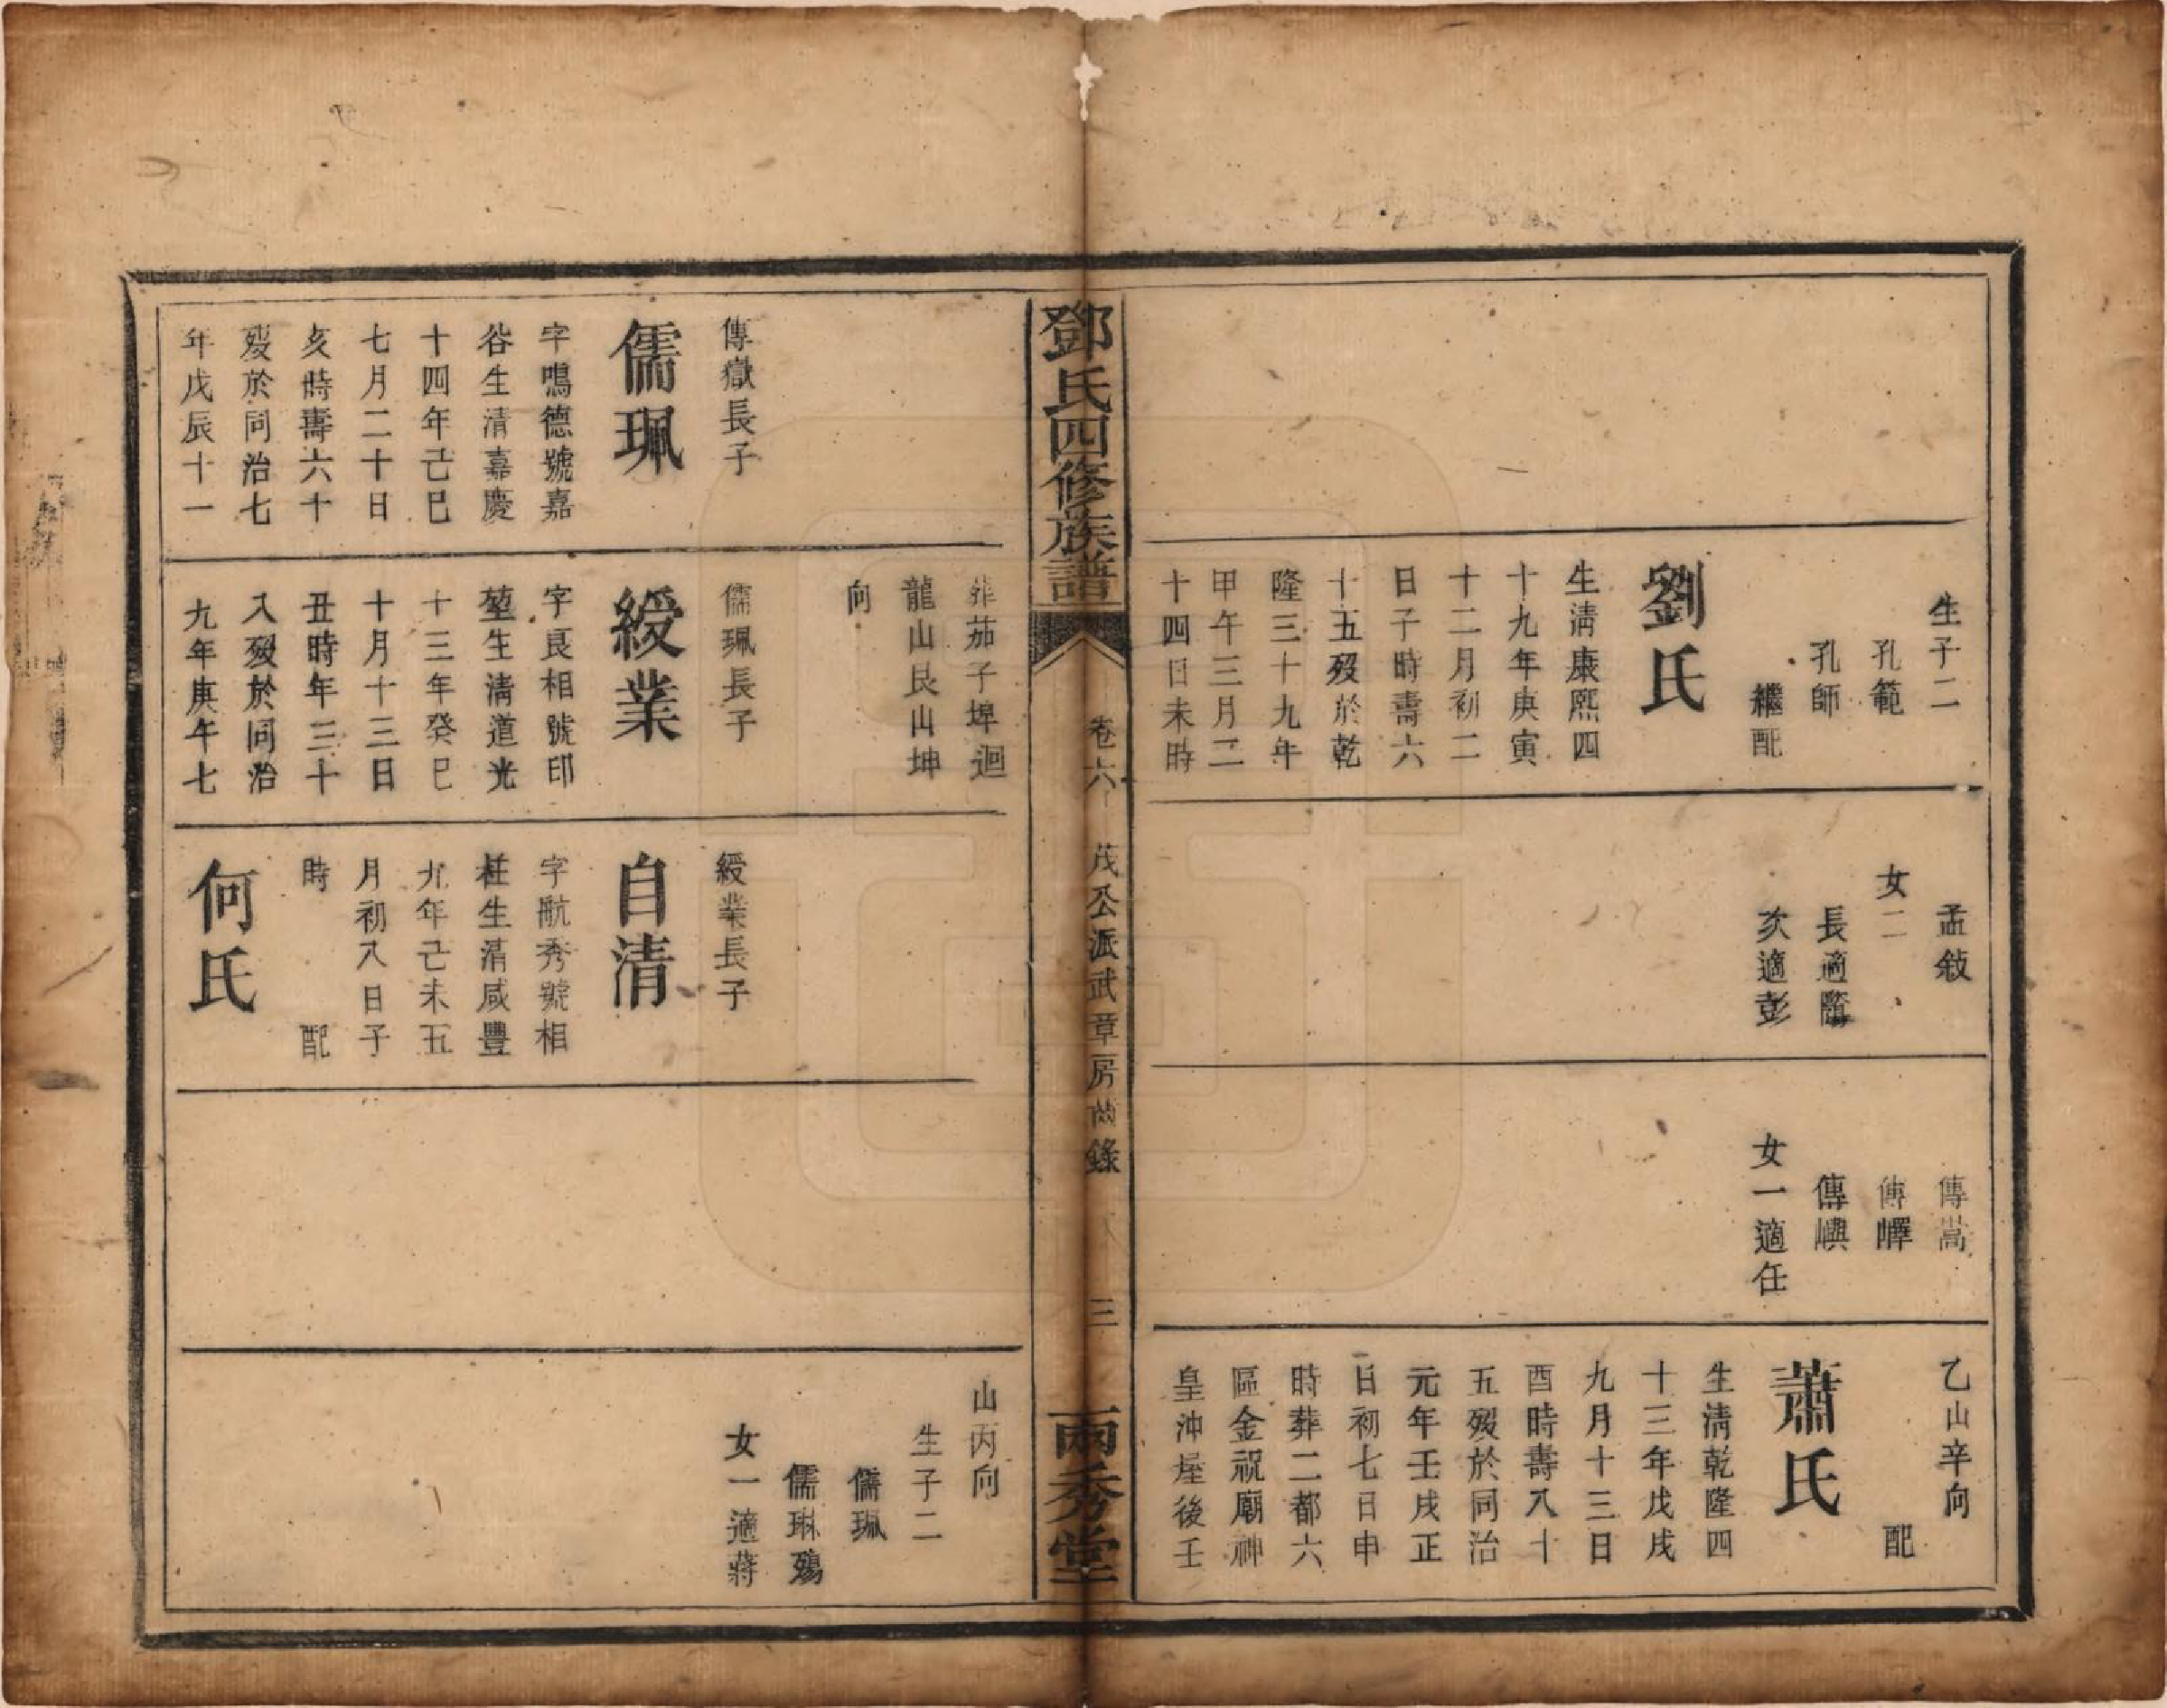 生子二
孔範
孔師
繼配
劉氏
生清康熙四
十九年庚寅
十二月初二
日子時壽六
十五歿於乾
隆三十九年
甲午三月二
十四日未時
孟敍
女二
長適
次適彭
傳嵩
傳嶧
傳嶼
女一適任
乙山辛向
配
蕭氏
生清乾隆四
十三年戊戌
九月十三日
酉時壽八十
五歿於同治
元年壬戌正
日初七日申
時葬二都六
區金祝廟神
皇沖屋後壬
鄧氏四修族譜
卷六
茂公派武章房齒錄
三
兩秀堂
傳嶽長子
儒珮
字鳴德號嘉
谷生清嘉慶
十四年己巳
七月二十日
亥時壽六十
歿於同治七
年戊辰十一
葬茄子埠迴
龍山艮山坤
向
儒珮長子
綬業
字良相號印
堃生清道光
十三年癸巳
十月十三日
丑時年三十
八歿於同治
九年庚午七
綬業長子
自清
字航秀號相
枉生清咸豐
九年己未五
月初八日子
時 配
何氏
山丙向
生子二
儒珮
儒琳殤
女一適蔣